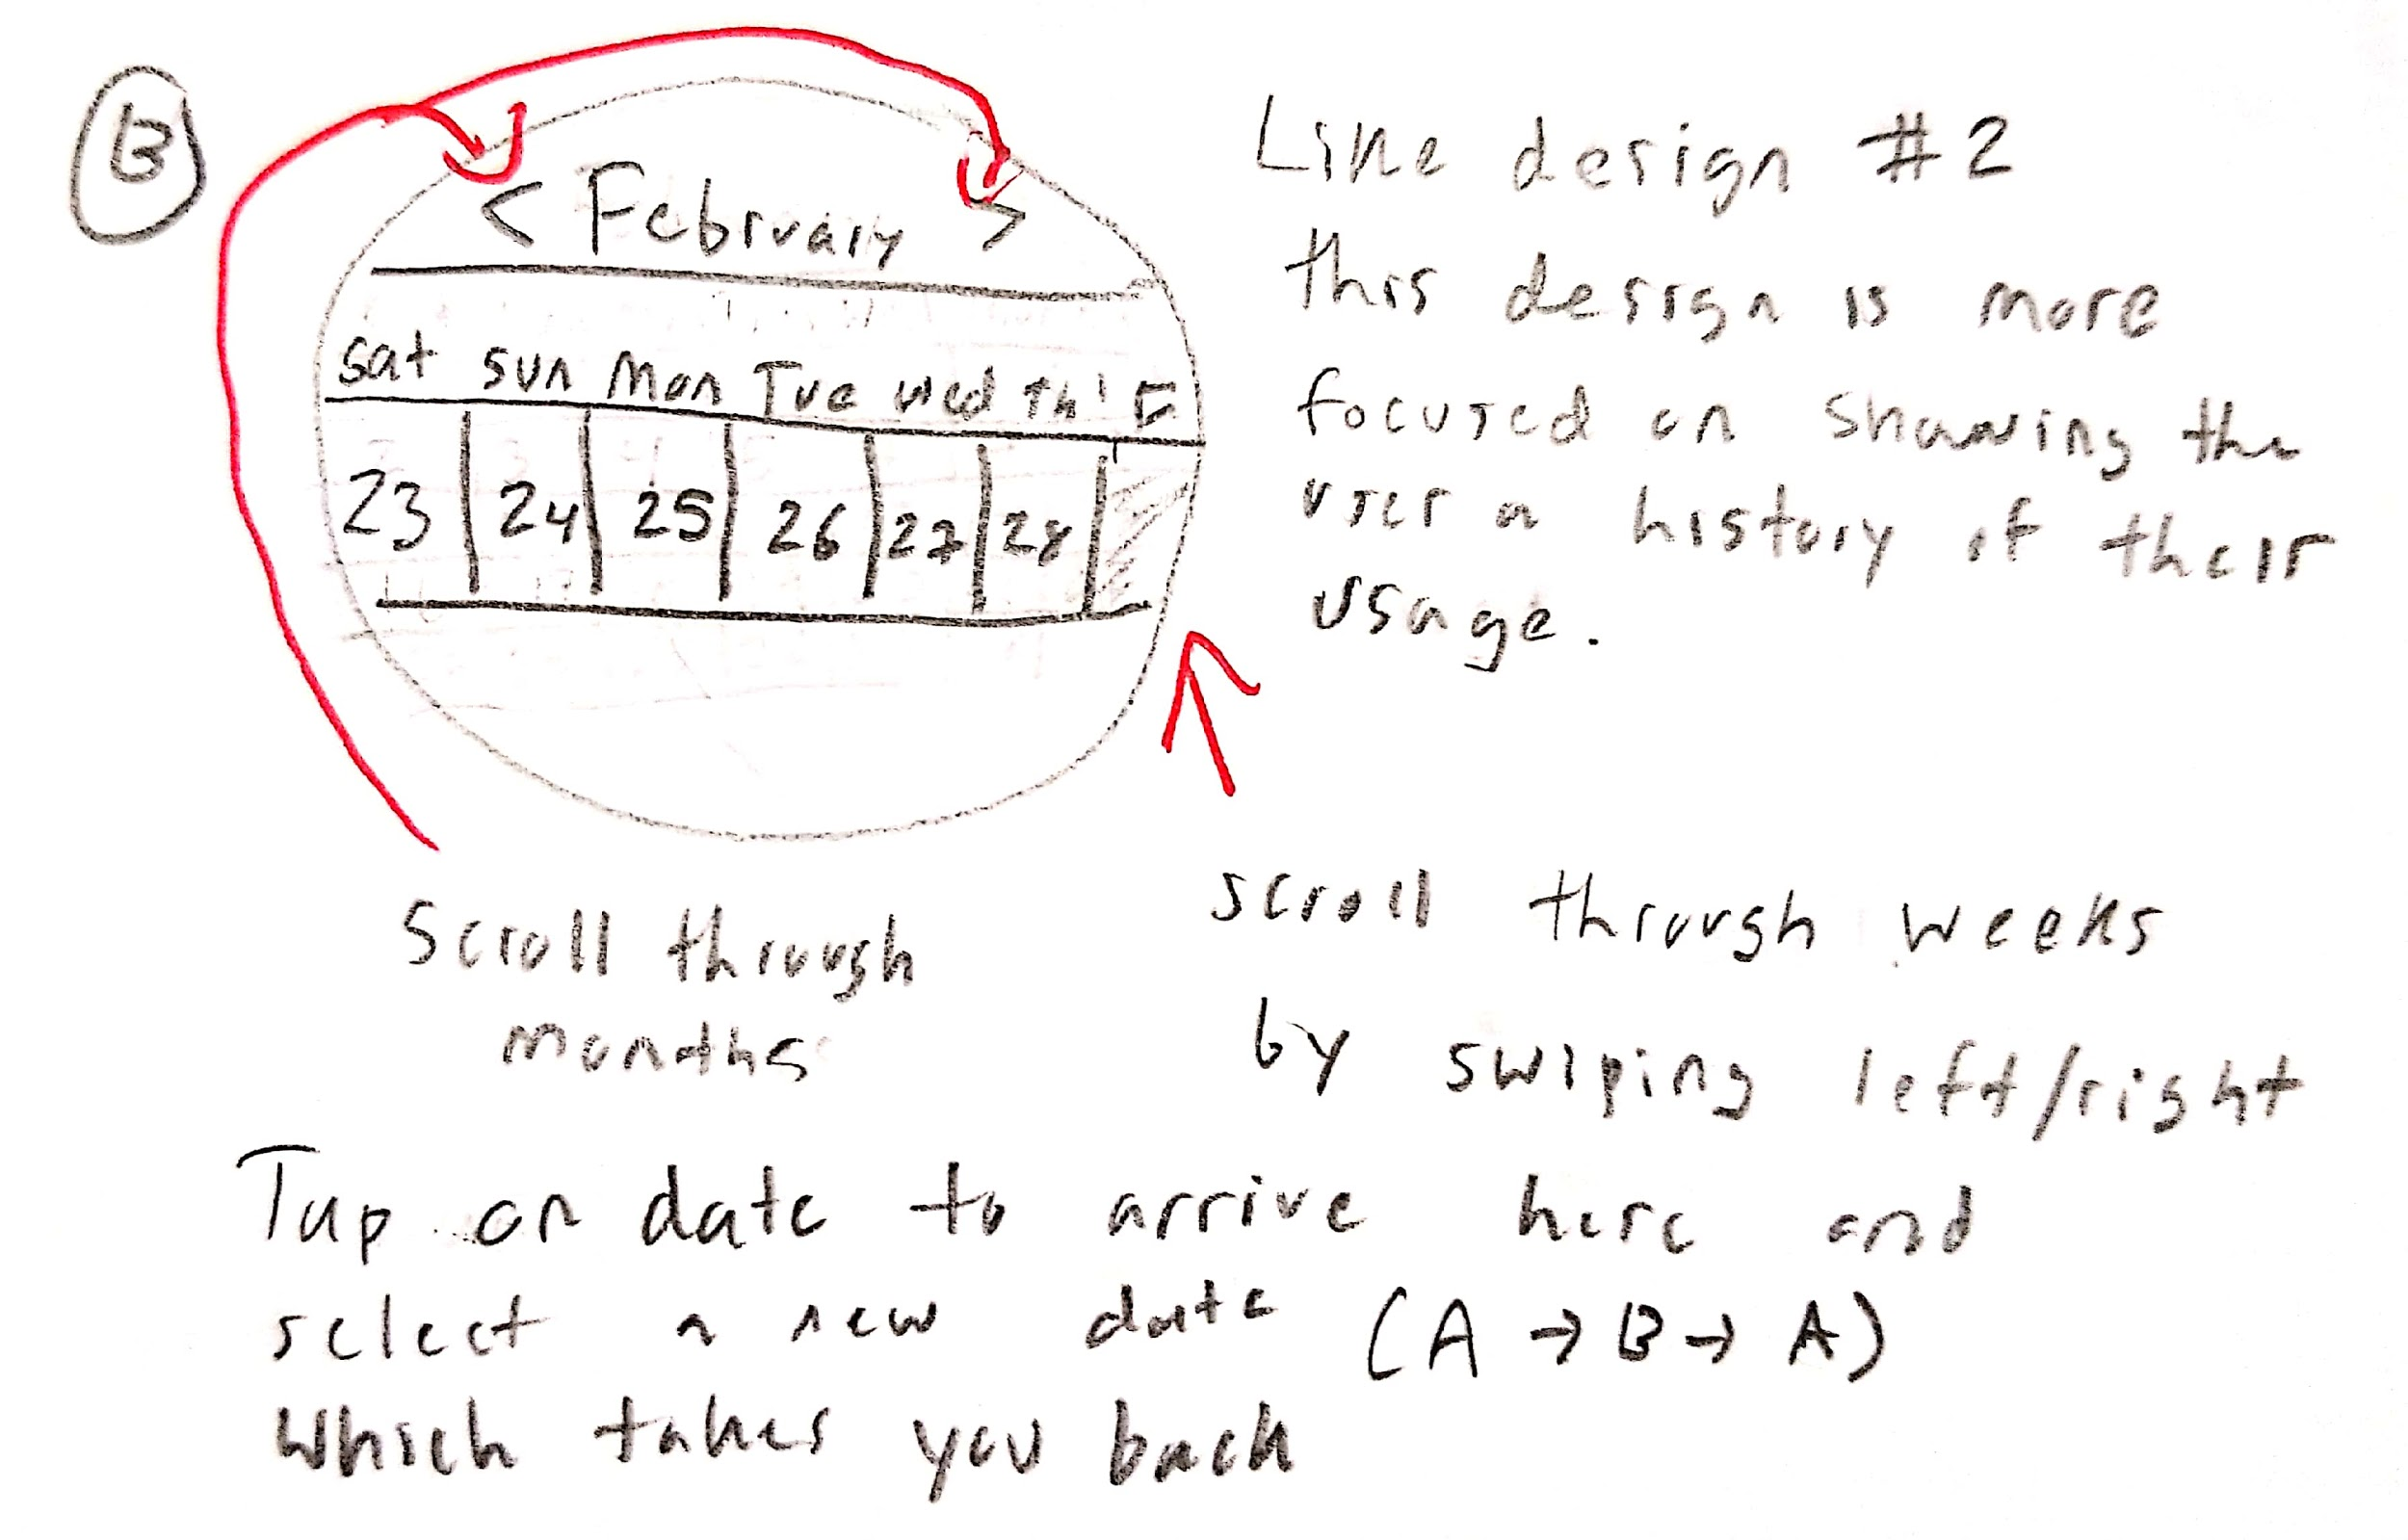 B
< February >
Sat Sun Mon Tue Wed Th F
23 24 25 26 27 28
Like design #2
this design is more
focused on showing the
user a history of their
usage.
Scroll through
months
scroll through weeks
by swiping left/right
Tap on date to arrive here and
select a new date (A → B → A)
which takes you back